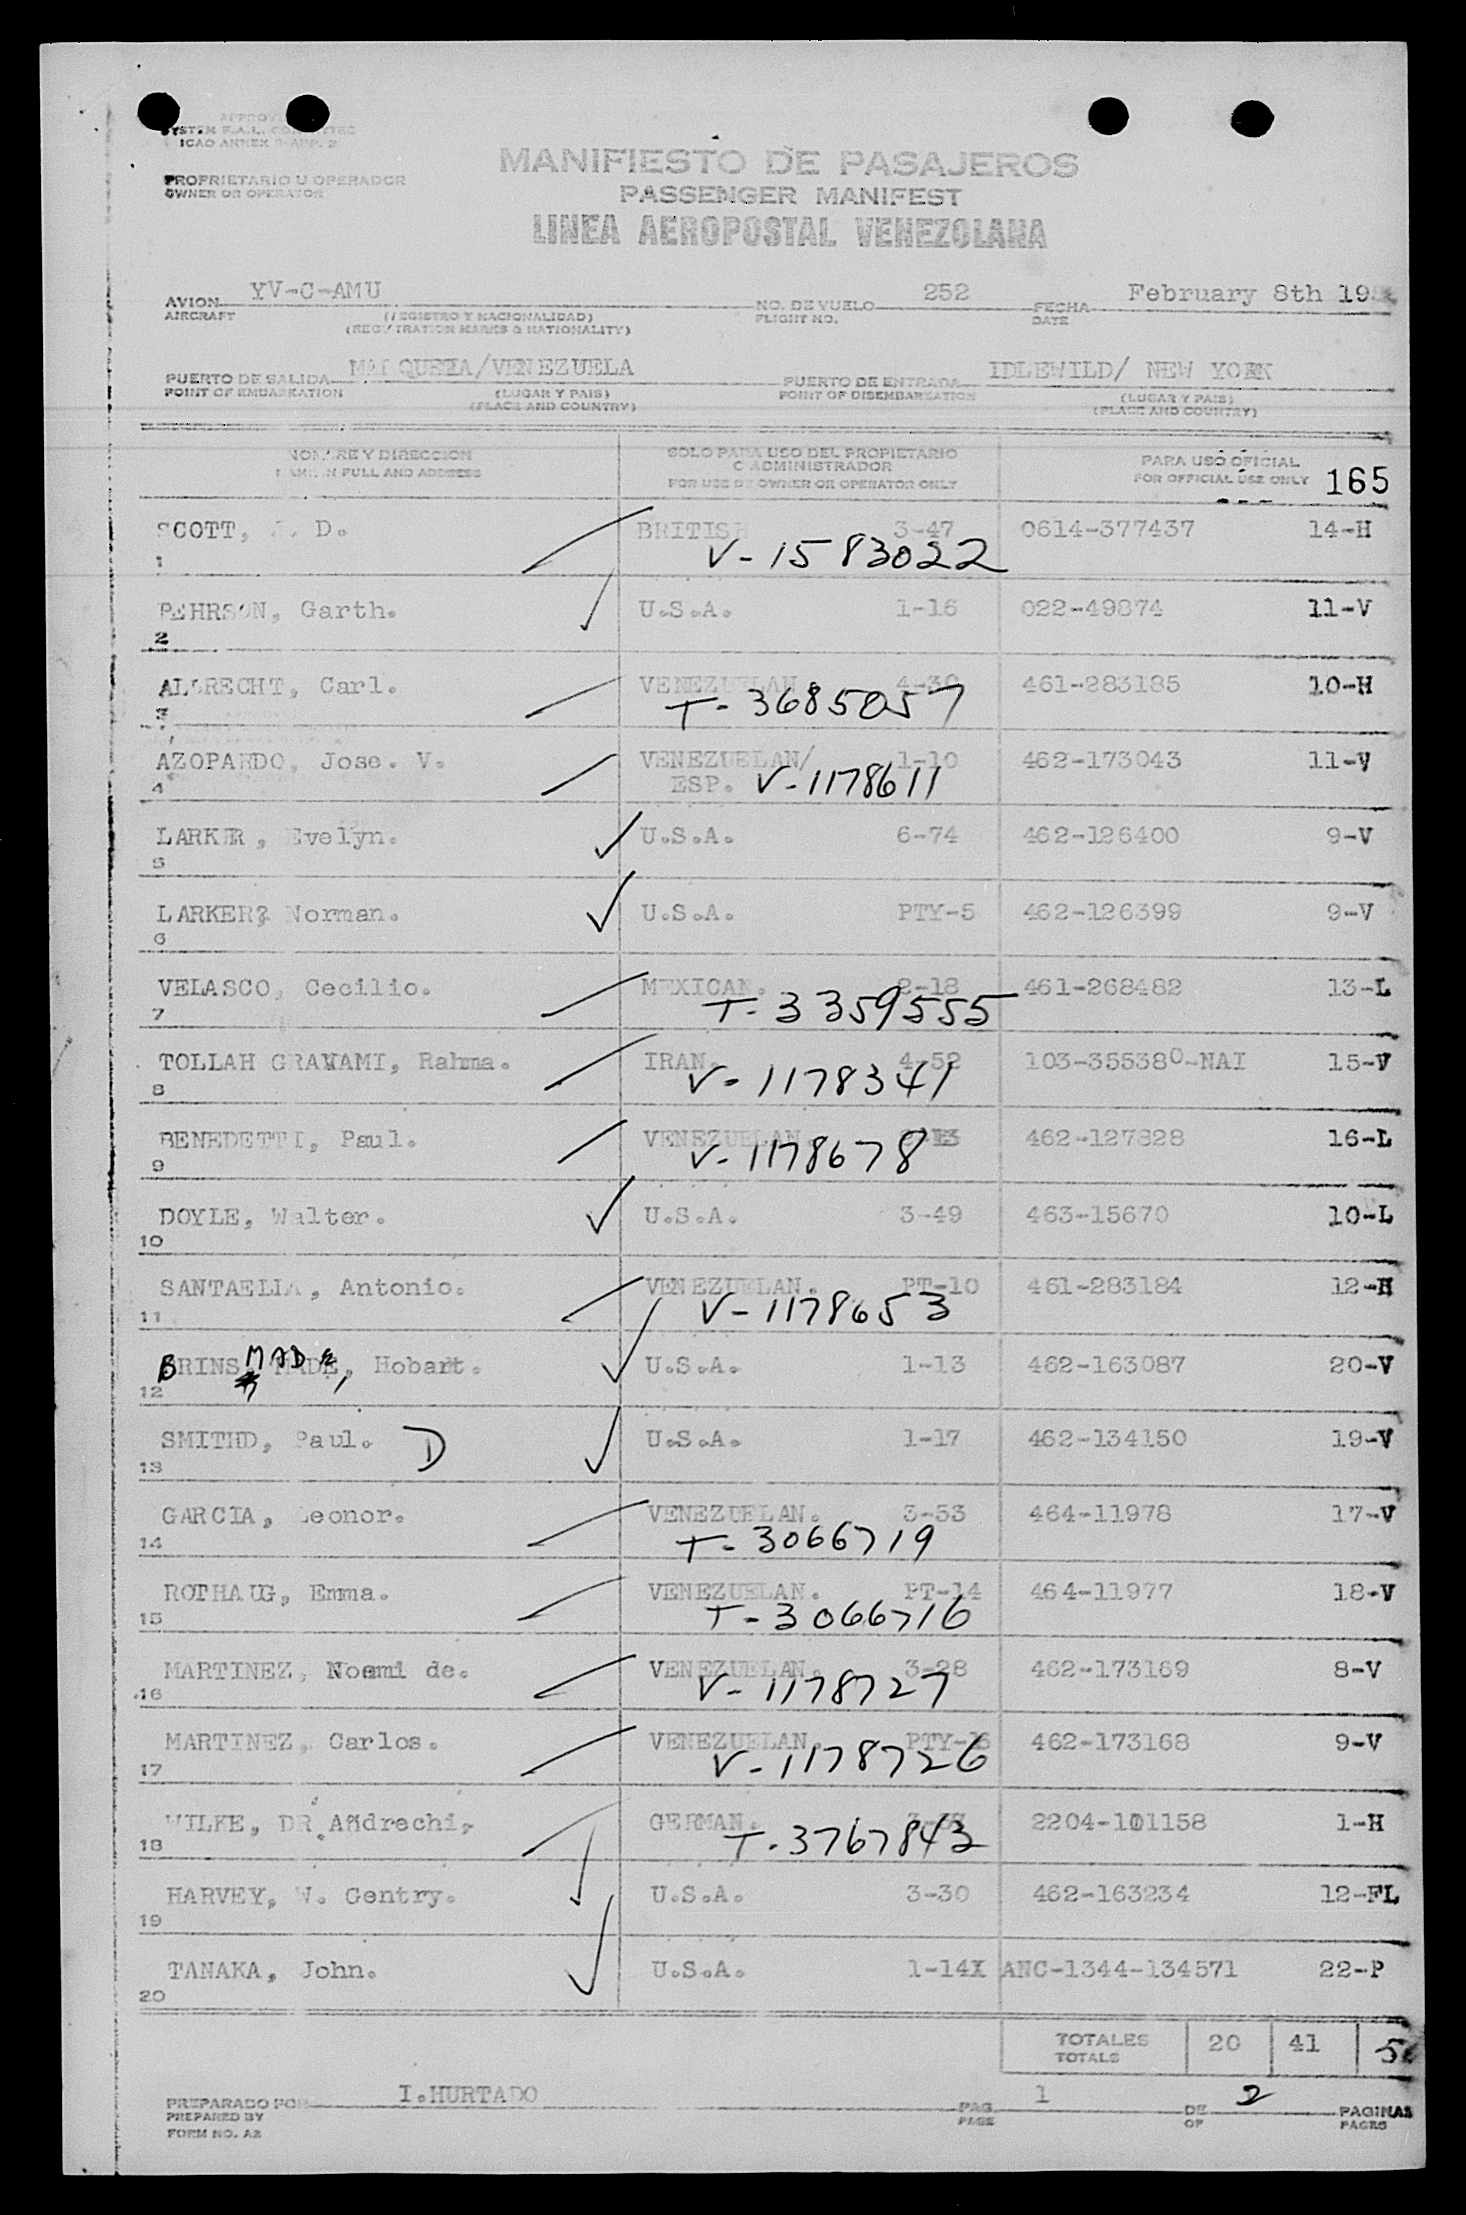 SYSTEM F.A.L.
ICAO ANNEX
PROPRIETARIO U OPERADOR
OWNER OR OPERATOR
MANIFIESTO DE PASAJEROS
PASSENGER MANIFEST
LINEA AEROPOSTAL VENEZOLANA
AVION YV-C-AMU NO. DE VUELO 252 FECHA February 8th 19
AIRCRAFT (REGISTRO Y NACIONALIDAD) FLIGHT NO. DATE
(REGISTRATION MARKS & NATIONALITY)
PUERTO DE SALIDA MAIQUETIA/VENEZUELA PUERTO DE ENTRADA IDLEWILD/ NEW YORK
POINT OF EMBARKATION (LUGAR Y PAIS) POINT OF DISEMBARKATION (LUGAR Y PAIS)
(PLACE AND COUNTRY) (PLACE AND COUNTRY)
NOMBRE Y DIRECCION SOLO PARA USO DEL PROPIETARIO PARA USO OFICIAL
NAME IN FULL AND ADDRESS O ADMINISTRADOR FOR OFFICIAL USE ONLY 165
FOR USE OF OWNER OR OPERATOR ONLY
SCOTT, D. BRITISH 3-47 0614-377437 14-H
1 V-1583022
PEHRSON, Garth. U.S.A. 1-16 022-49874 11-V
2
ALBRECHT, Carl. VENEZUELAN 4-30 461-283185 10-H
3 T-3685057
AZOPARDO, Jose. V. VENEZUELAN/ 1-10 462-173043 11-V
4 ESP. V-1178611
LARKER, Evelyn. U.S.A. 6-74 462-126400 9-V
5
LARKER, Norman. U.S.A. PTY-5 462-126399 9-V
6
VELASCO, Cecilio. MEXICAN. 2-18 461-268482 13-L
7 T-3359555
TOLLAH GRAMAMI, Rahma. IRAN. 4-52 103-355380-NAI 15-V
8 V-1178341
BENEDETTI, Paul. VENEZUELAN. 462-127828 16-L
9 V-1178678
DOYLE, Walter. U.S.A. 3-49 463-15670 10-L
10
SANTAELLA, Antonio. VENEZUELAN. PT-10 461-283184 12-H
11 V-1178653
BRINSMADE, Hobart. U.S.A. 1-13 462-163087 20-V
12
SMITHD, Paul. D U.S.A. 1-17 462-134150 19-V
13
GARCIA, Leonor. VENEZUELAN. 3-53 464-11978 17-V
14 T-3066719
ROTHAUG, Emma. VENEZUELAN. PT-14 464-11977 18-V
15 T-3066716
MARTINEZ, Noemi de. VENEZUELAN. 3-28 462-173169 8-V
16 V-1178727
MARTINEZ, Carlos. VENEZUELAN. 462-173168 9-V
17 V-1178726
WILKE, DR. Andrechi, GERMAN. 2204-101158 1-H
18 T-3767843
HARVEY, W. Gentry. U.S.A. 3-30 462-163234 12-FL
19
TANAKA, John. U.S.A. 1-14X ANC-1344-134571 22-P
20
TOTALES 20 41
TOTALS
PREPARADO POR I.HURTADO PAG. 1 DE 2 PAGINAS
PREPARED BY PAGE OF PAGES
FORM NO. A2